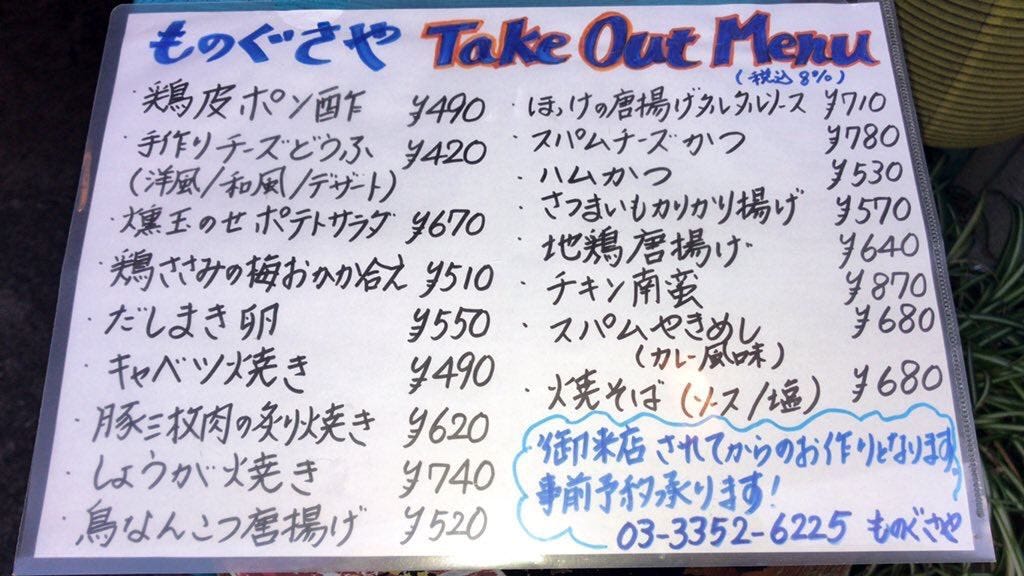 ものぐさや Take Out Menu
(税込 8%)
・鶏皮ポン酢 ¥490
・手作りチーズどうふ ¥420
(洋風/和風/デザート)
・燻玉のせポテトサラダ ¥670
・鶏ささみの梅おかか合え ¥510
・だしまき卵 ¥550
・キャベツ焼き ¥490
・豚三枚肉の炙り焼き ¥620
・しょうが焼き ¥740
・鳥なんこつ唐揚げ ¥520
・ほっけの唐揚げタルタルソース ¥710
・スパムチーズかつ ¥780
・ハムかつ ¥530
・さつまいもカリカリ揚げ ¥570
・地鶏唐揚げ ¥640
・チキン南蛮 ¥870
・スパムやきめし ¥680
(カレー風味)
・焼そば (ソース/塩) ¥680
御来店されてからのお作りとなります。
事前予約承ります!
03-3352-6225 ものぐさや